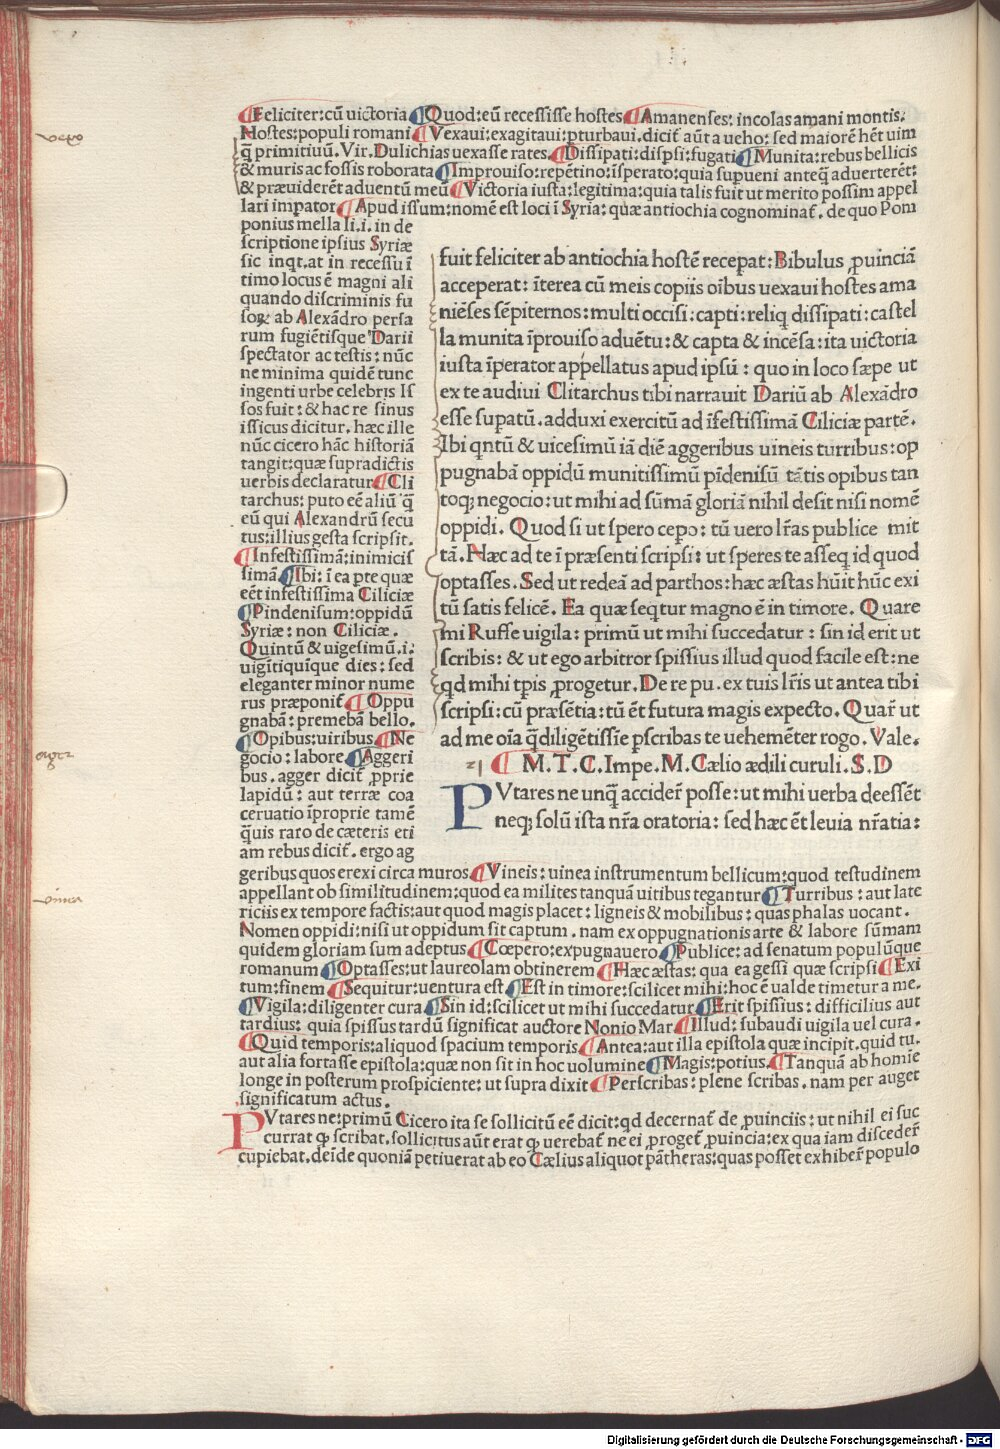 ¶Feliciter: cū uictoria ¶Quod: eū recessisse hostes ¶Amanenses: incolas amani montis.
Hostes: populi romani ¶Vexaui: exagitaui: pturbaui. dicit̄ aūt a ueho: sed maiorē hēt uim
q̄ primitiuū. Vir. Dulichias uexasse rates. ¶Dissipati: dispsi: fugati ¶Munita: rebus bellicis
& muris ac fossis roborata ¶Improuiso: repētino: īsperato: quia supueni anteq̄ aduerterēt:
& præuiderēt aduentū meū ¶Victoria iusta: legitima: quia talis fuit ut merito possim appel
lari impator ¶Apud issum: nomē est loci ī Syria: quæ antiochia cognominat̄. de quo Pom
ponius mella li. i. in de
scriptione ipsius Syriæ
sic inqt. at in recessu ī
timo locus ē magni ali
quando discriminis fu
soꝝ ab Alexādro persa
rum fugiētisque Darii
spectator ac testis: nūc
ne minima quidē tunc
ingenti urbe celebris Is
sos fuit: & hac re sinus
issicus dicitur. hæc ille
nūc cicero hāc historiā
tangit: quæ supradictis
uerbis declaratur ¶Cli
tarchus: puto eē aliū q̄
eū qui Alexandrū secu
tus: illius gesta scripsit.
¶Infestissimā: inimicis
simā ¶Ibi: ī ea pte quæ
eēt infestissima Ciliciæ
¶Pindenisum: oppidū
Syriæ: non Ciliciæ.
Quintū & uigesimū. i.
uigītiquīque dies: sed
eleganter minor nume
rus præponit̄ ¶Oppu
gnabā: premebā bello.
¶Opibus: uiribus ¶Ne
gocio: labore ¶Aggeri
bus. agger dicit̄ pprie
lapidū: aut terræ coa
ceruatio īproprie tamē
q̄uis raro de cæteris eti
am rebus dicit̄. ergo ag
fuit feliciter ab antiochia hostē recepat: Bibulus ꝓuinciā
acceperat: īterea cū meis copiis oībus uexaui hostes ama
niēses sēpiternos: multi occisi: capti: reliq dissipati: castel
la munita īprouiso aduētu: & capta & incēsa: ita uictoria
iusta īperator appellatus apud ipsū: quo in loco sæpe ut
ex te audiui Clitarchus tibi narrauit Dariū ab Alexādro
esse supatū. adduxi exercitū ad īfestissimā Ciliciæ partē.
Ibi qntū & uicesimū iā diē aggeribus uineis turribus: op
pugnabā oppidū munitissimū pīdenisū tātis opibus tan
toq; negocio: ut mihi ad sūmā gloriā nihil desit nisi nomē
oppidi. Quod si ut spero cepo: tū uero lr̄as publice mit
tā. Hæc ad te ī præsenti scripsi: ut speres te asseq id quod
optasses. Sed ut redeā ad parthos: hæc æstas hūit hūc exi
tū satis felicē. Ea quæ seqtur magno ē in timore. Quare
mi Ruffe uigila: primū ut mihi succedatur: sin id erit ut
scribis: & ut ego arbitror spissius illud quod facile est: ne
qd mihi tp̄is ꝓrogetur. De re pu. ex tuis lr̄is ut antea tibi
scripsi: cū præsētia: tū ēt futura magis expecto. Quar̄ ut
ad me oīa q̄diligētissīe pscribas te uehemēter rogo. Vale.
¶ M. T. C. Impe. M. Cælio ædili curuli. S. D
PVtares ne unq̄ accider̄ posse: ut mihi uerba deessēt
neq; solū ista nr̄a oratoria: sed hæc ēt leuia nr̄atia:
geribus quos erexi circa muros. ¶Vineis: uinea instrumentum bellicum: quod testudinem
appellant ob similitudinem: quod ea milites tanquā uitibus tegantur ¶Turribus: aut late
riciis ex tempore factis: aut quod magis placet: ligneis & mobilibus: quas phalas uocant.
Nomen oppidi: nisi ut oppidum sit captum. nam ex oppugnationis arte & labore sūmam
quidem gloriam sum adeptus ¶Cœpero: expugnauero ¶Publice: ad senatum populūque
romanum ¶Optasses: ut laureolam obtinerem ¶Hæc æstas: qua ea gessi quæ scripsi ¶Exi
tum: finem ¶Sequitur: uentura est ¶Est in timore: scilicet mihi: hoc ē ualde timetur a me.
¶Vigila: diligenter cura ¶Sin id: scilicet ut mihi succedatur ¶Erit spissius: difficilius aut
tardius: quia spissus tardū significat auctore Nonio Mar. ¶Illud: subaudi uigila uel cura.
¶Quid temporis: aliquod spacium temporis ¶Antea: aut illa epistola quæ incipit. quid tu.
aut alia fortasse epistola: quæ non sit in hoc uolumine ¶Magis: potius. ¶Tanquā ab homīe
longe in posterum prospiciente: ut supra dixit ¶Perscribas: plene scribas. nam per auget
significatum actus.
PVtares ne: primū Cicero ita se sollicitū eē dicit: qd decernat̄ de ꝓuinciis: ut nihil ei suc
currat qƺ scribat. sollicitus aūt erat qƺ uerebat̄ ne ei ꝓroget̄ ꝓuincia: ex qua iam disceder̄
cupiebat. deīde quoniā petiuerat ab eo Cælius aliquot pātheras: quas posset exhiber̄ populo
vexo
agger
vinea
21
Digitalisierung gefördert durch die Deutsche Forschungsgemeinschaft - DFG